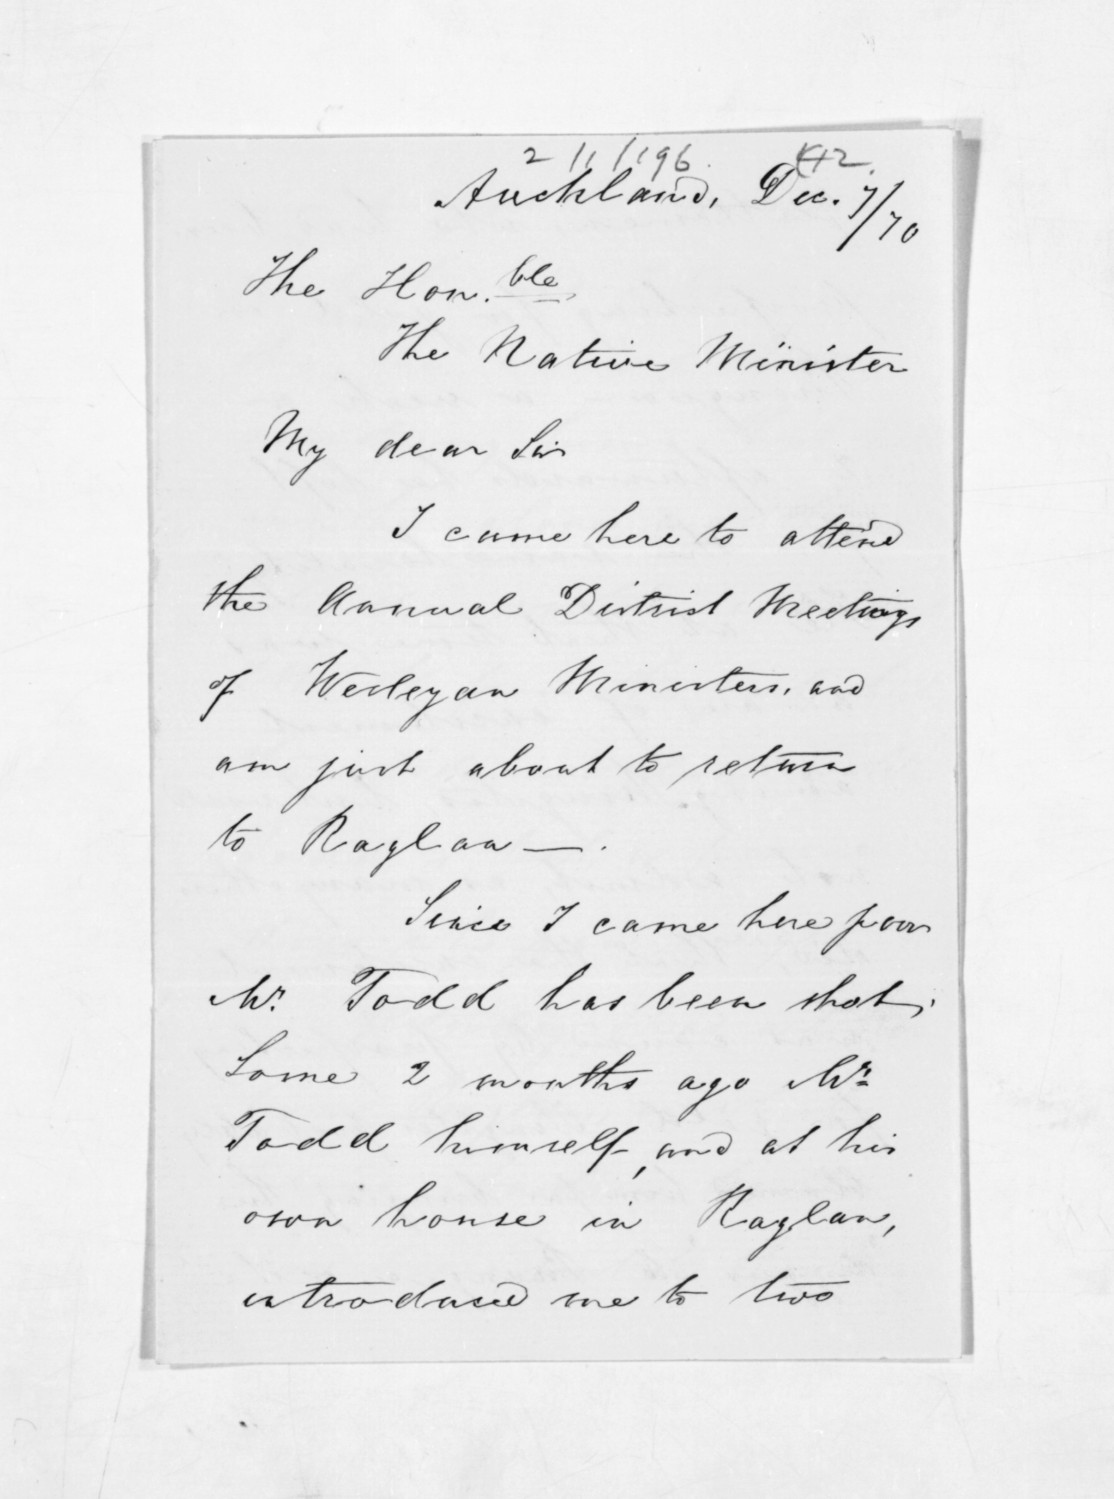 Auckland, Dec. 7/70
The Hon.ble
The Native Minister
My dear Sir
I came here to attend
the Annual District Meetings
of Wesleyan Ministers, and
am just about to return
to Raglan —.
Since I came here poor
Mr. Todd has been shot,
Some 2 months ago Mr.
Todd himself, and at his
own house in Raglan,
introduced me to two